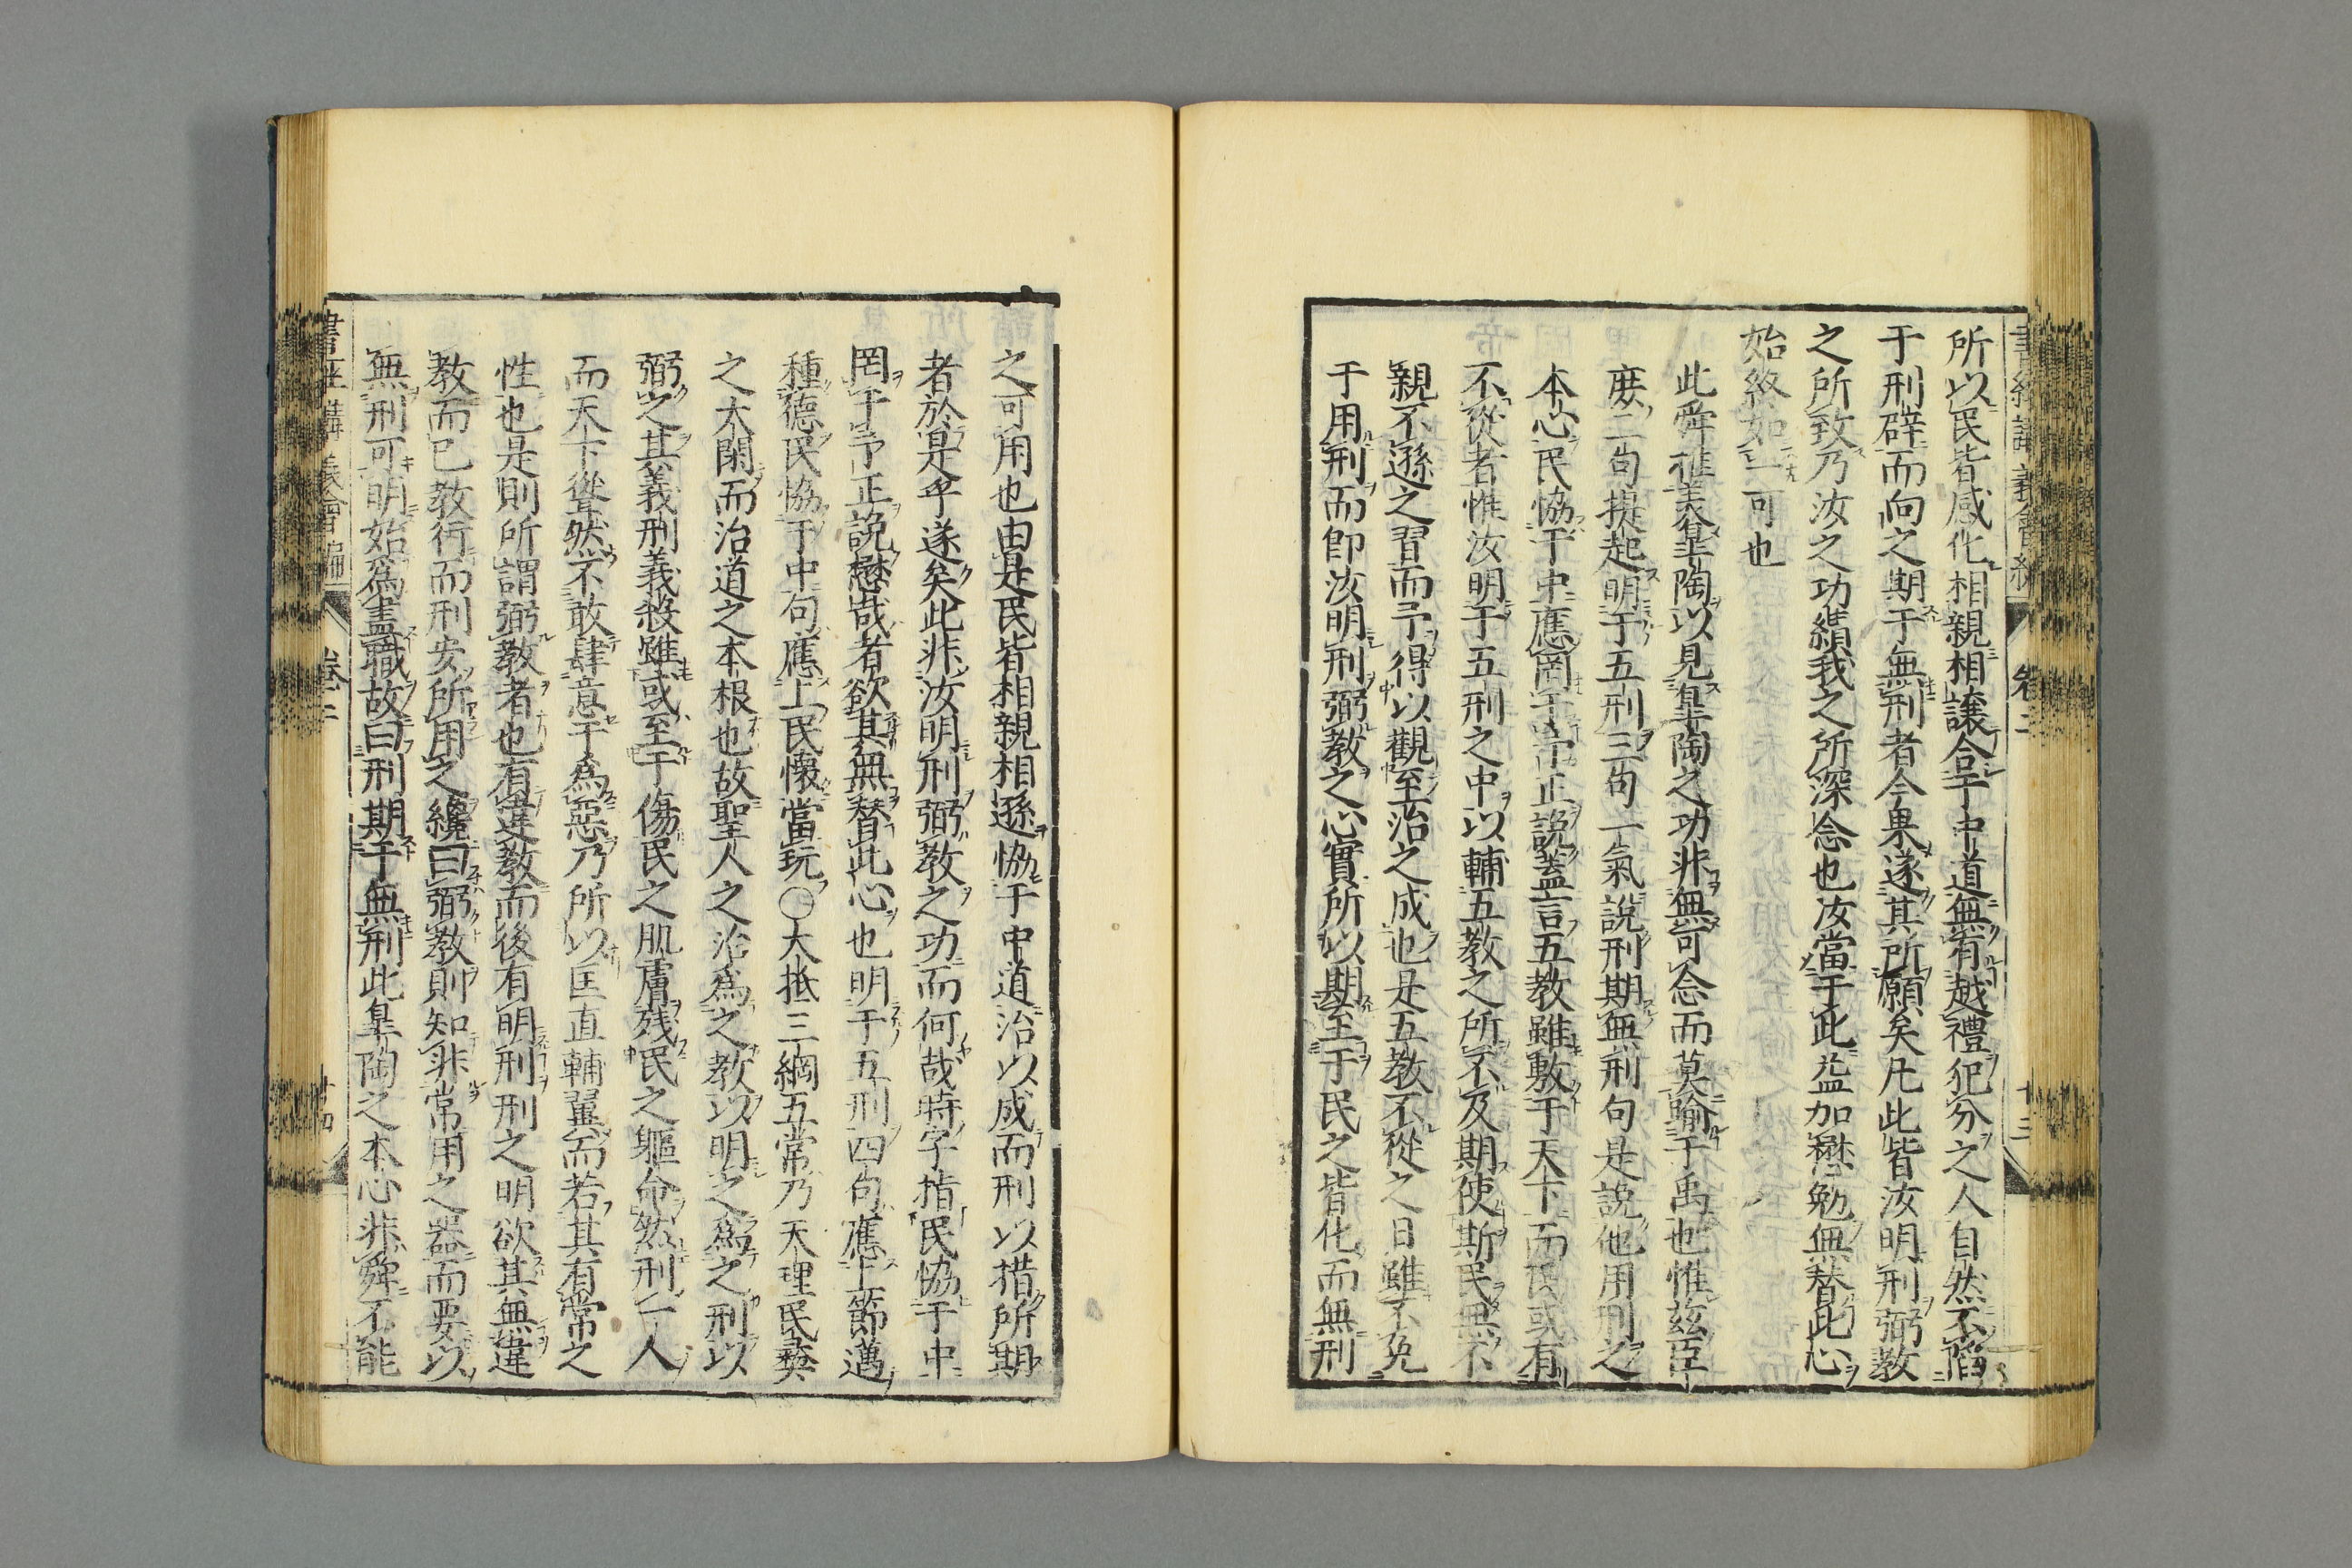 書經講義會編 卷二 十三
所以民皆感化相親相讓合乎中道無有越禮犯分之人自然不陷
于刑辟而向之期于無刑者今果遂其所願矣凡此皆汝明刑弼教
之所致乃汝之功績我之所深念也汝當于此益加懋勉無替此心
始終如一可也
此舜推美皐陶以見皐陶之功非無可念而莫喻于禹也惟茲臣
庶二句提起明于五刑三句一氣說刑期無刑句是說他用刑之
本心民協于中應罔干予正說蓋言五教雖敷于天下而民或有
不從者惟汝明于五刑之中以輔五教之所不及期使斯民無不
親不遜之習而予得以觀至治之成也是五教不從之日雖不免
于用刑而卽汝明刑弼教之心實所以期至于民之皆化而無刑
之可用也由是民皆相親相遜協于中道治以成而刑以措所期
者於是乎遂矣此非汝明刑弼教之功而何哉時字指民協于中
罔干予正說懋哉者欲其無替此心也明于五刑四句應上節邁
種德民協于中句應上民懷當玩○大抵三綱五常乃天理民彝
之大閑而治道之本根也故聖人之治爲之教以明之爲之刑以
弼之其義刑義殺雖或至于傷民之肌膚殘民之軀命然刑一人
而天下聳然不敢肆意于爲惡乃所以匡直輔翼而若其有常之
性也是則所謂弼教者也有違教而後有明刑刑之明欲其無違
教而已教行而刑安所用之纔曰弼教則知非常用之器而要以
無刑可明始爲盡職故曰刑期于無刑此皐陶之本心非舜不能
書經講義會編 卷二 十四